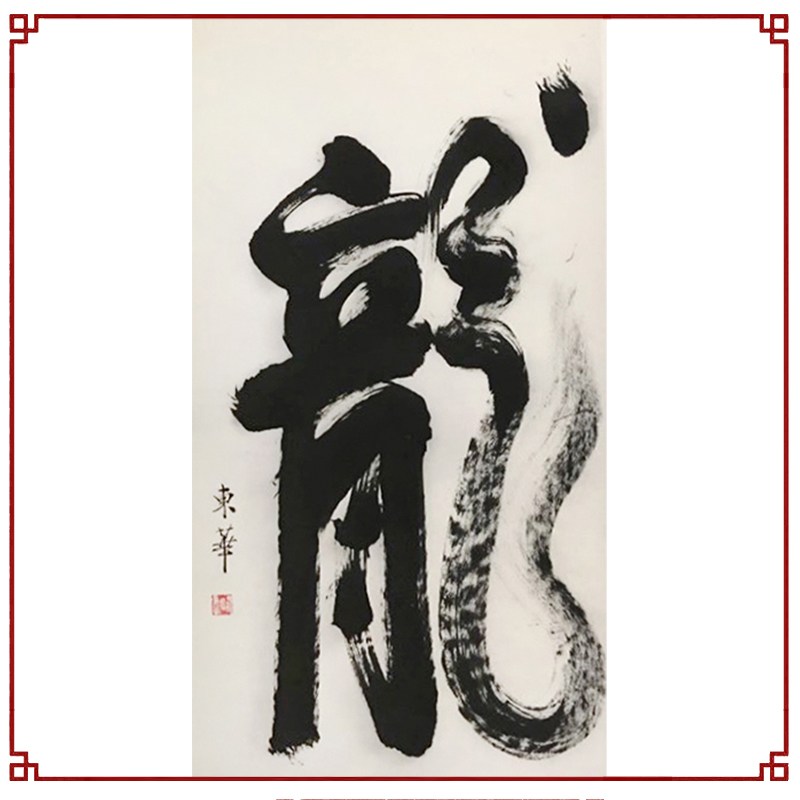 龍
東華